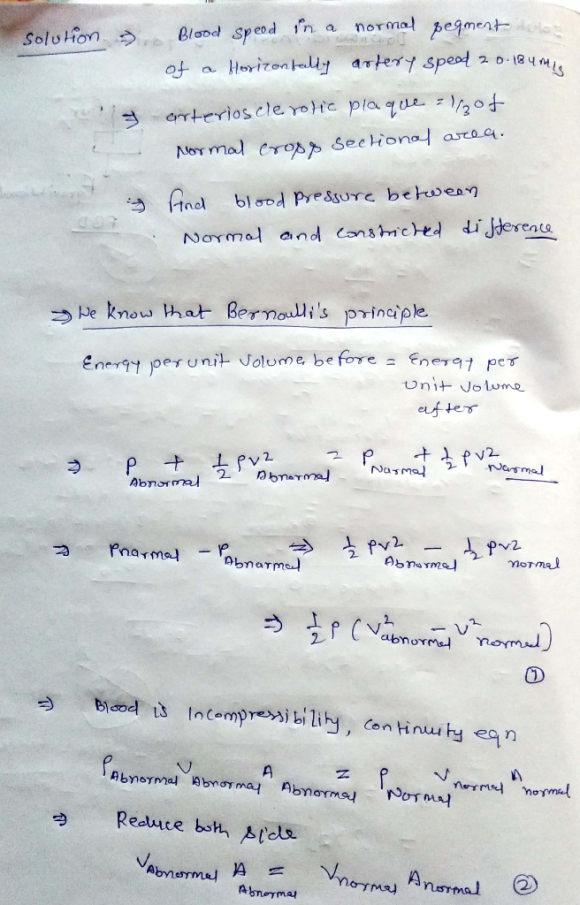 Solution ⇒ Blood speed in a normal segment
of a Horizontally artery speed 2 0.184 m/s
⇒ arteriosclerotic plaque = 1/3 of
Normal cross sectional area.
⇒ find blood pressure between
Normal and constricted difference
⇒ We know that Bernoulli's principle
Energy per unit volume before = Energy per
unit volume
after
⇒ P Abnormal + 1/2 ρv² Abnormal = P Normal + 1/2 ρv² Normal
⇒ Pnormal - P Abnormal ⇒ 1/2 ρv² Abnormal - 1/2 ρv² normal
⇒ 1/2 ρ (v² abnormal - v² normal)
①
⇒ Blood is Incompressibility, continuity eqn
ρ Abnormal V Abnormal A Abnormal = ρ Normal V normal A normal
⇒ Reduce both side
V Abnormal A Abnormal = Vnormal Anormal ②